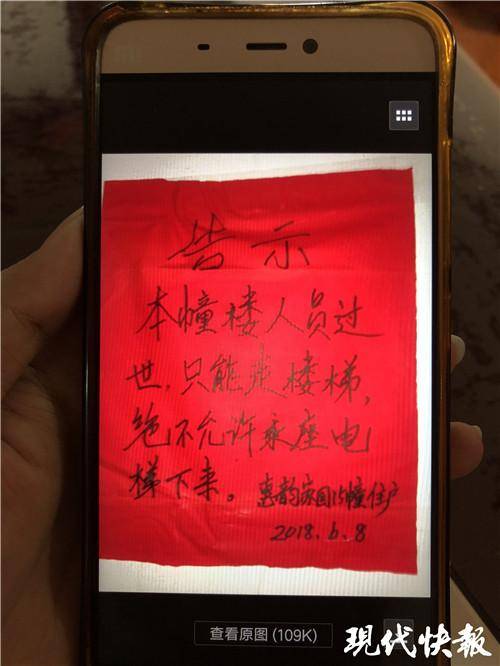 告示
本幢楼人员过
世，只能走楼梯，
绝不允许乘座电
梯下来。惠韵家园15幢住户
2018.6.8
查看原图(109K)
现代快报